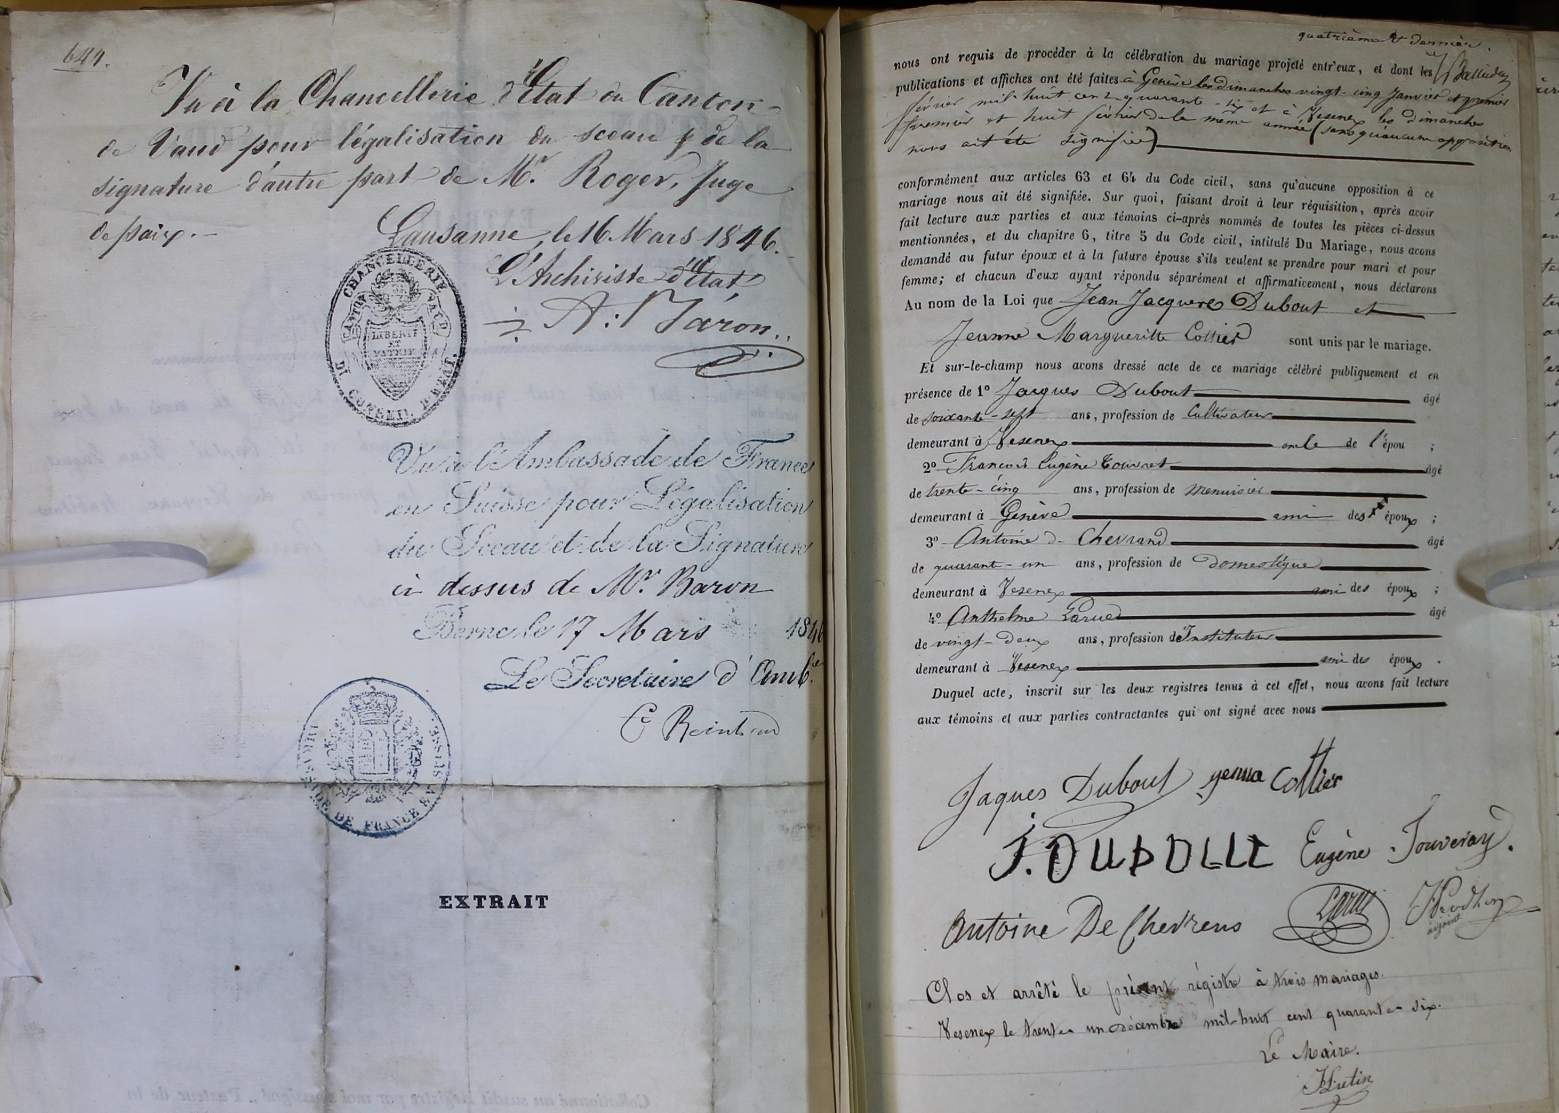 644.
Vu à la Chancellerie d'État du Canton
de Vaud pour légalisation du sceau & de la
signature d'autre part de Mr. Roger, Juge
de paix.
Lausanne, le 16 Mars 1846.
L'Archiviste d'État
CHANCELLERIE
CANTON VAUD
LIBERTÉ
ET
PATRIE
DU CONSEIL D'ÉTAT.
Vu à l'Ambassade de France
en Suisse pour Légalisation
du Sceau et de la Signature
ci dessus de Mr. Baron
Berne le 17 Mars 1846
Le Secretaire d'Amb.
AMBASSADE DE FRANCE EN SUISSE.
EXTRAIT
quatrième & dernier.
nous ont requis de procéder à la célébration du mariage projeté entr'eux, et dont les
publications et affiches ont été faites à Genève les dimanches vingt-cinq Janvier et premier
février mil-huit cent quarante-six et à Vesenex les dimanches
premier et huit février de la même année (sans qu'aucune opposition
nous ait été signifiée)
conformément aux articles 63 et 64 du Code civil, sans qu'aucune opposition à ce
mariage nous ait été signifiée. Sur quoi, faisant droit à leur réquisition, après avoir
fait lecture aux parties et aux témoins ci-après nommés de toutes les pièces ci-dessus
mentionnées, et du chapitre 6, titre 5 du Code civil, intitulé Du Mariage, nous avons
demandé au futur époux et à la future épouse s'ils veulent se prendre pour mari et pour
femme; et chacun d'eux ayant répondu séparément et affirmativement, nous déclarons
Au nom de la Loi que Jean Jacques Dubout et
Jeanne Margueritte Cottier sont unis par le mariage.
Et sur-le-champ nous avons dressé acte de ce mariage célébré publiquement et en
présence de 1º Jacques Dubout âgé
de soixante-sept ans, profession de Cultivateur
demeurant à Vesenex oncle de l'épou ;
2º François Eugène âgé
de trente-cinq ans, profession de menuisier
demeurant à Genève ami des époux ;
3º Antoine De Chevrand âgé
de quarant-un ans, profession de domestique
demeurant à Vesenex ami des époux ;
4º Anthelme âgé
de vingt-deux ans, profession d'Instituteur
demeurant à Vesenex ami des époux .
Duquel acte, inscrit sur les deux registres tenus à cet effet, nous avons fait lecture
aux témoins et aux parties contractantes qui ont signé avec nous
Jaques Dubout yenna Cottier
Eugène
Antoine De Chevrens
adjoint
Clos et arrêté le présent régistre à trois mariages.
Vesenex le trente-un décembre mil-huit cent quarante-six.
Le Maire.